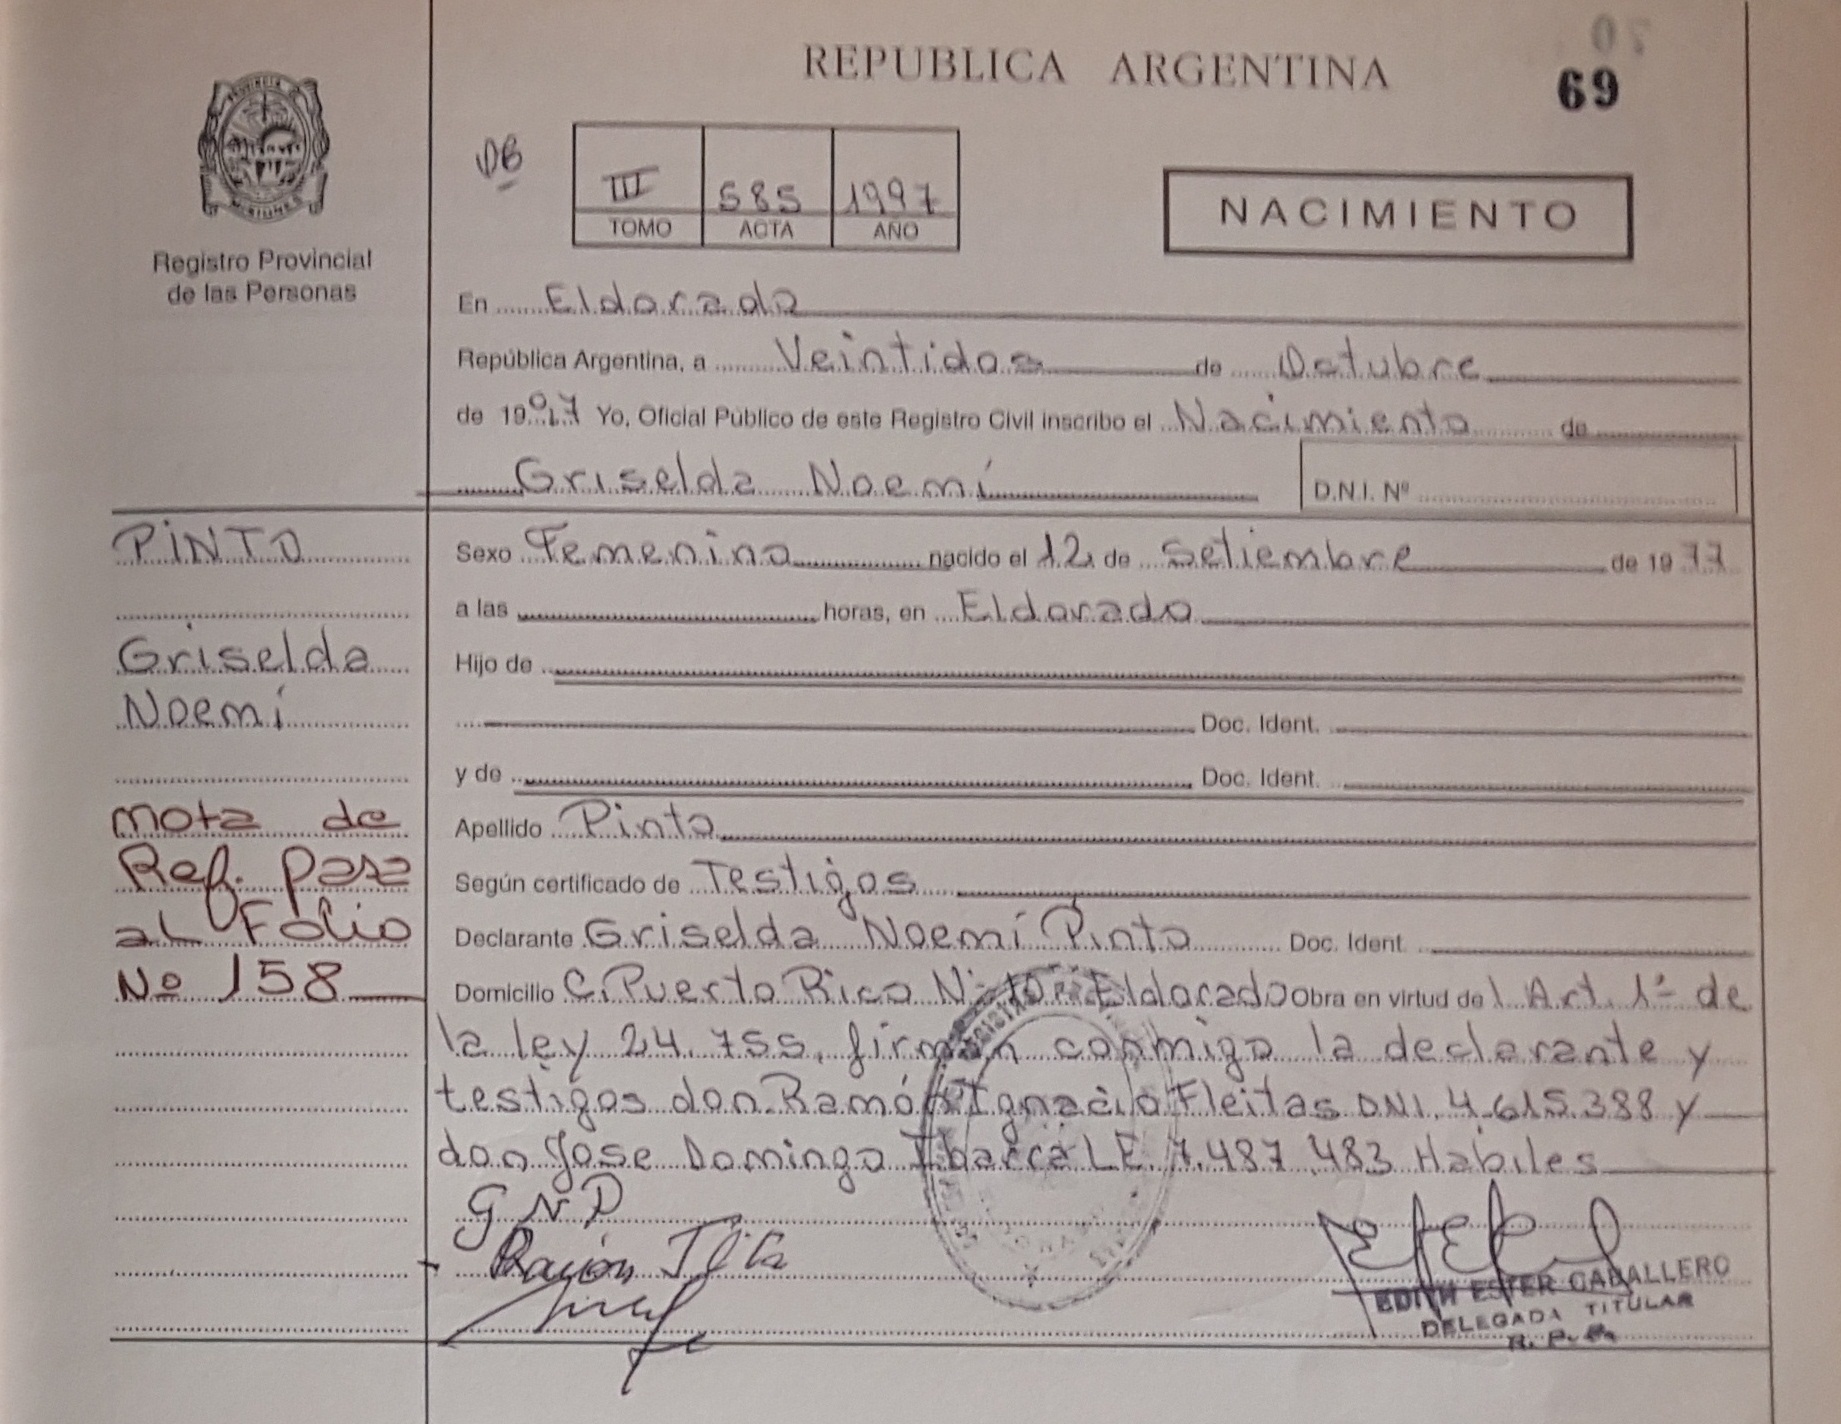 REPUBLICA ARGENTINA
69
PROVINCIA
MISIONES
Registro Provincial
de las Personas
III 585 1997
TOMO ACTA AÑO
NACIMIENTO
En Eldorado
República Argentina, a Veintidos de Octubre
de 1997 Yo, Oficial Público de este Registro Civil inscribo el Nacimiento de
Griselda Noemí D.N.I. Nº
PINTO
Griselda
Noemí
Nota de
Ref. pasa
al Folio
Nº 158
Sexo Femenino nacido el 12 de Setiembre de 1977
a las horas, en Eldorado
Hijo de
Doc. Ident.
y de Doc. Ident.
Apellido Pinto
Según certificado de Testigos
Declarante Griselda Noemí Pinto Doc. Ident.
Domicilio C. Puerto Rico Nº Eldorado Obra en virtud del Art. 1º de
la ley 24.755, firman conmigo la declarante y
testigos don Ramón Ignacio Fleitas DNI. 4.615.388 y
don Jose Domingo Ibarra L.E. 7.487.483 Habiles
G N P
EDITH ESTER CABALLERO
DELEGADA TITULAR
R. P. P.